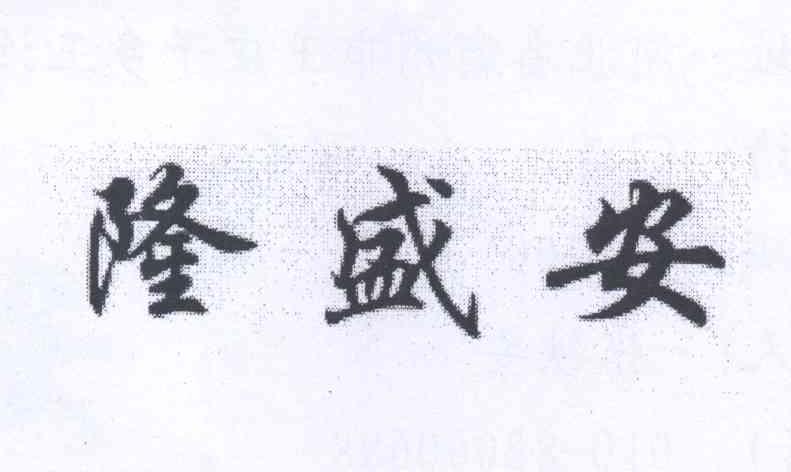 隆盛安